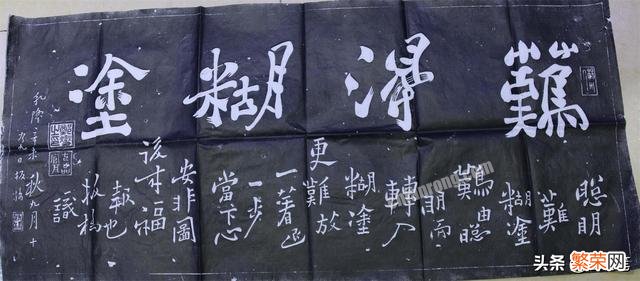 難淂糊塗
聰明
難
糊塗
難由聰
明而
轉入
糊塗
更難放
一著退
一步
當下心
安非圖
後來福
報也
板橋
識
乾隆辛未秋九月十
有九日板橋
头条 @繁荣网